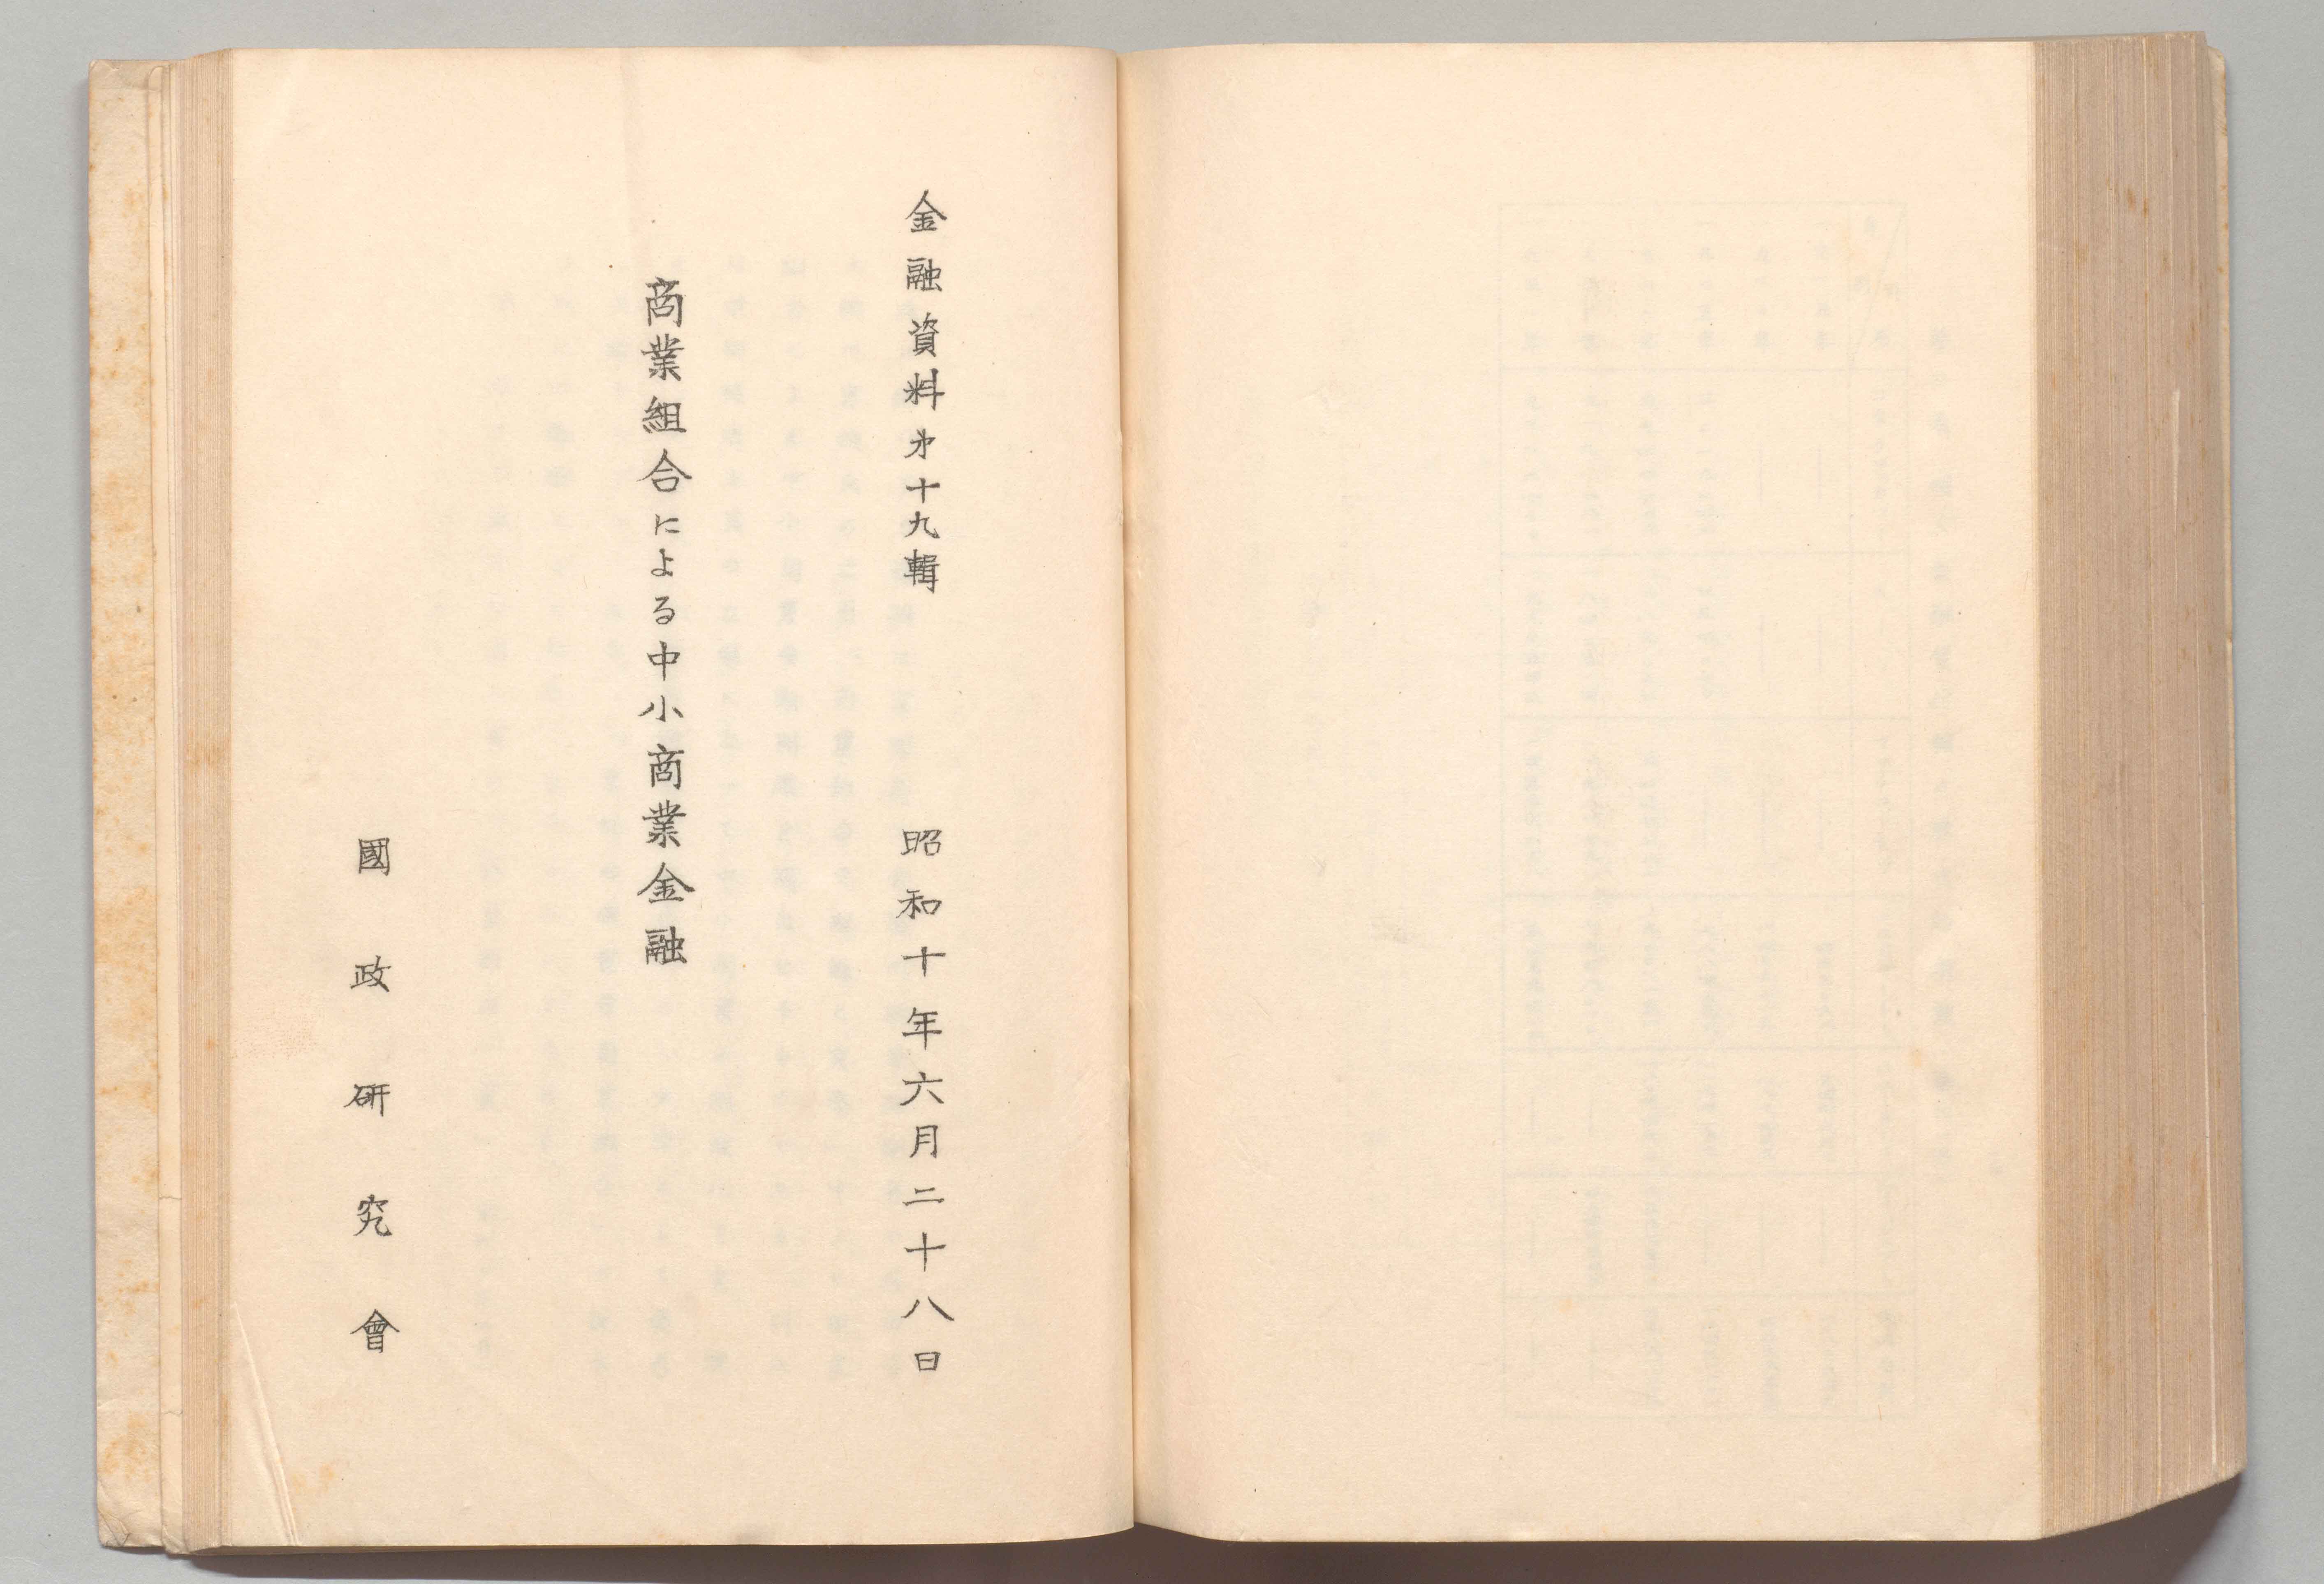 金融資料才十九輯　昭和十年六月二十八日
商業組合による中小商業金融
國政研究會